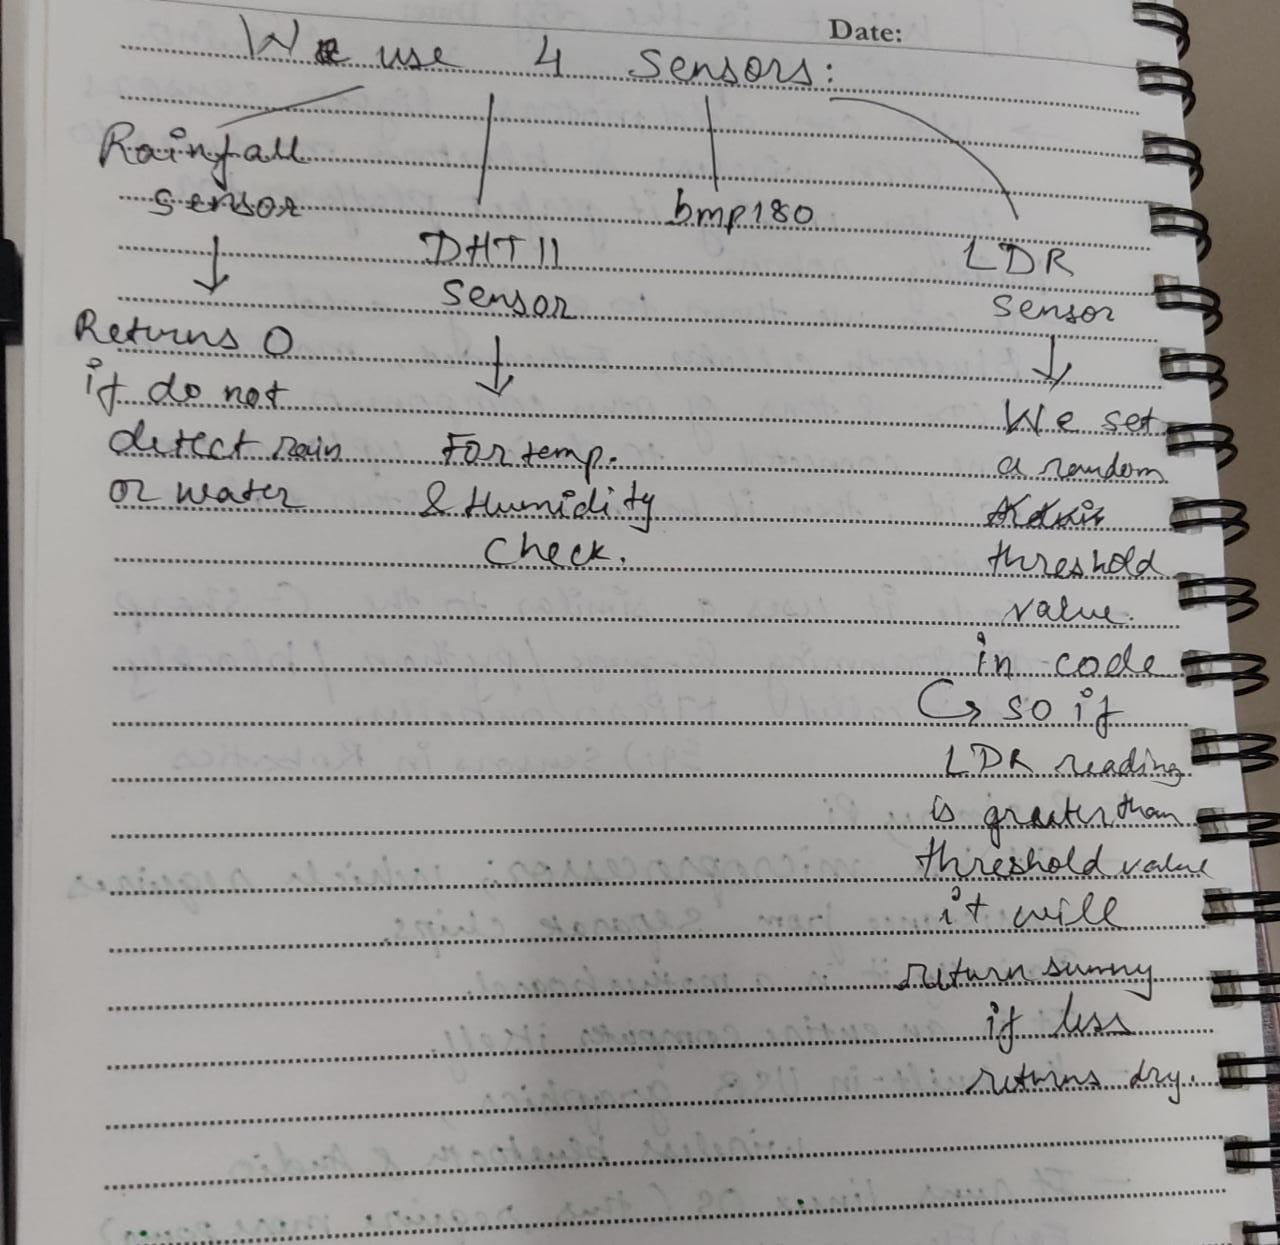 Date:
We use 4 Sensors:
Rainfall
sensor
Returns 0
if do not
detect rain
or water
DHT11
Sensor
For temp.
& Humidity
Check.
bmp180
LDR
Sensor
We set
a random
threshold
value
in code
↳ so if
LDR reading
is greater than
threshold value
it will
return sunny
if less
returns dry.